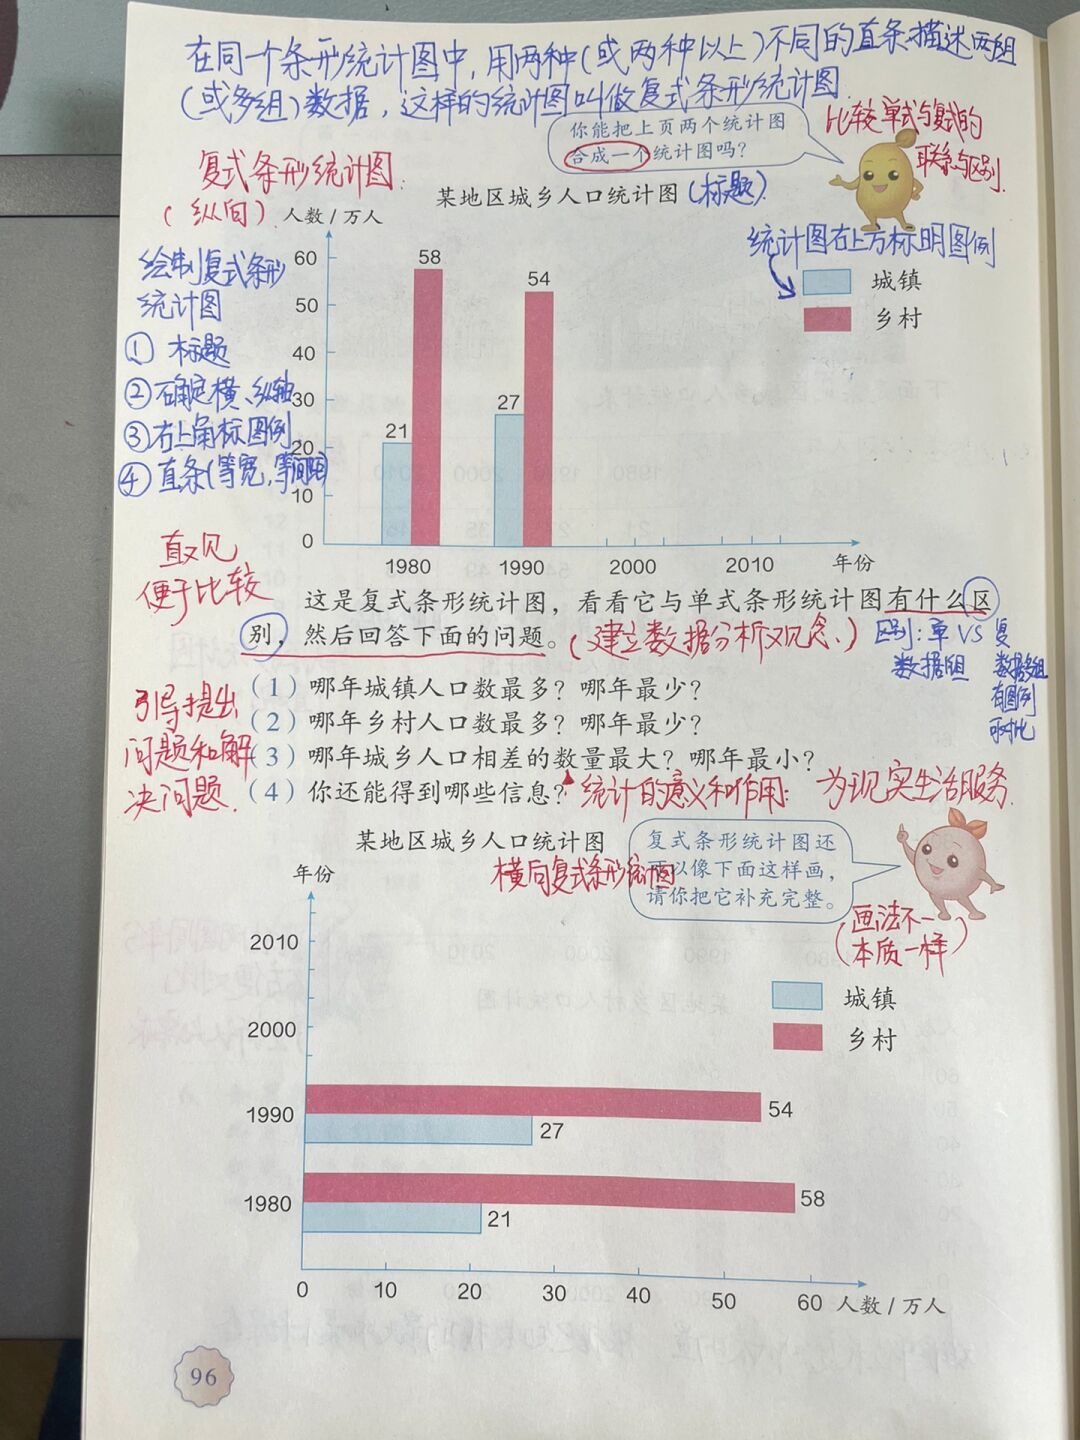 在同一个条形统计图中，用两种(或两种以上)不同的直条描述两组
(或多组)数据，这样的统计图叫做复式条形统计图.
你能把上页两个统计图
合成一个统计图吗？
比较单式与复式的
联系与区别.
复式条形统计图:
(纵向)
某地区城乡人口统计图
(标题)
人数/万人
统计图右上方标明图例
城镇
乡村
绘制复式条形
统计图
① 标题
② 确定横、纵轴
③ 右上角标图例
④ 直条(等宽,等间距)
60
50
40
30
20
10
0
21
58
27
54
1980
1990
2000
2010
年份
直观
便于比较
这是复式条形统计图，看看它与单式条形统计图有什么区
别，然后回答下面的问题。
(建立数据分析观念.)
区别:单 VS 复
数据组
数据多组
有图例
可对比
引导提出
问题和解
决问题.
（1）哪年城镇人口数最多？哪年最少？
（2）哪年乡村人口数最多？哪年最少？
（3）哪年城乡人口相差的数量最大？哪年最小？
（4）你还能得到哪些信息？
统计的意义和作用: 为现实生活服务.
某地区城乡人口统计图
横向复式条形统计图
复式条形统计图还
可以像下面这样画，
请你把它补充完整。
(画法不一
本质一样)
年份
城镇
乡村
2010
2000
1990
54
27
1980
58
21
0 10 20 30 40 50 60 人数/万人
96